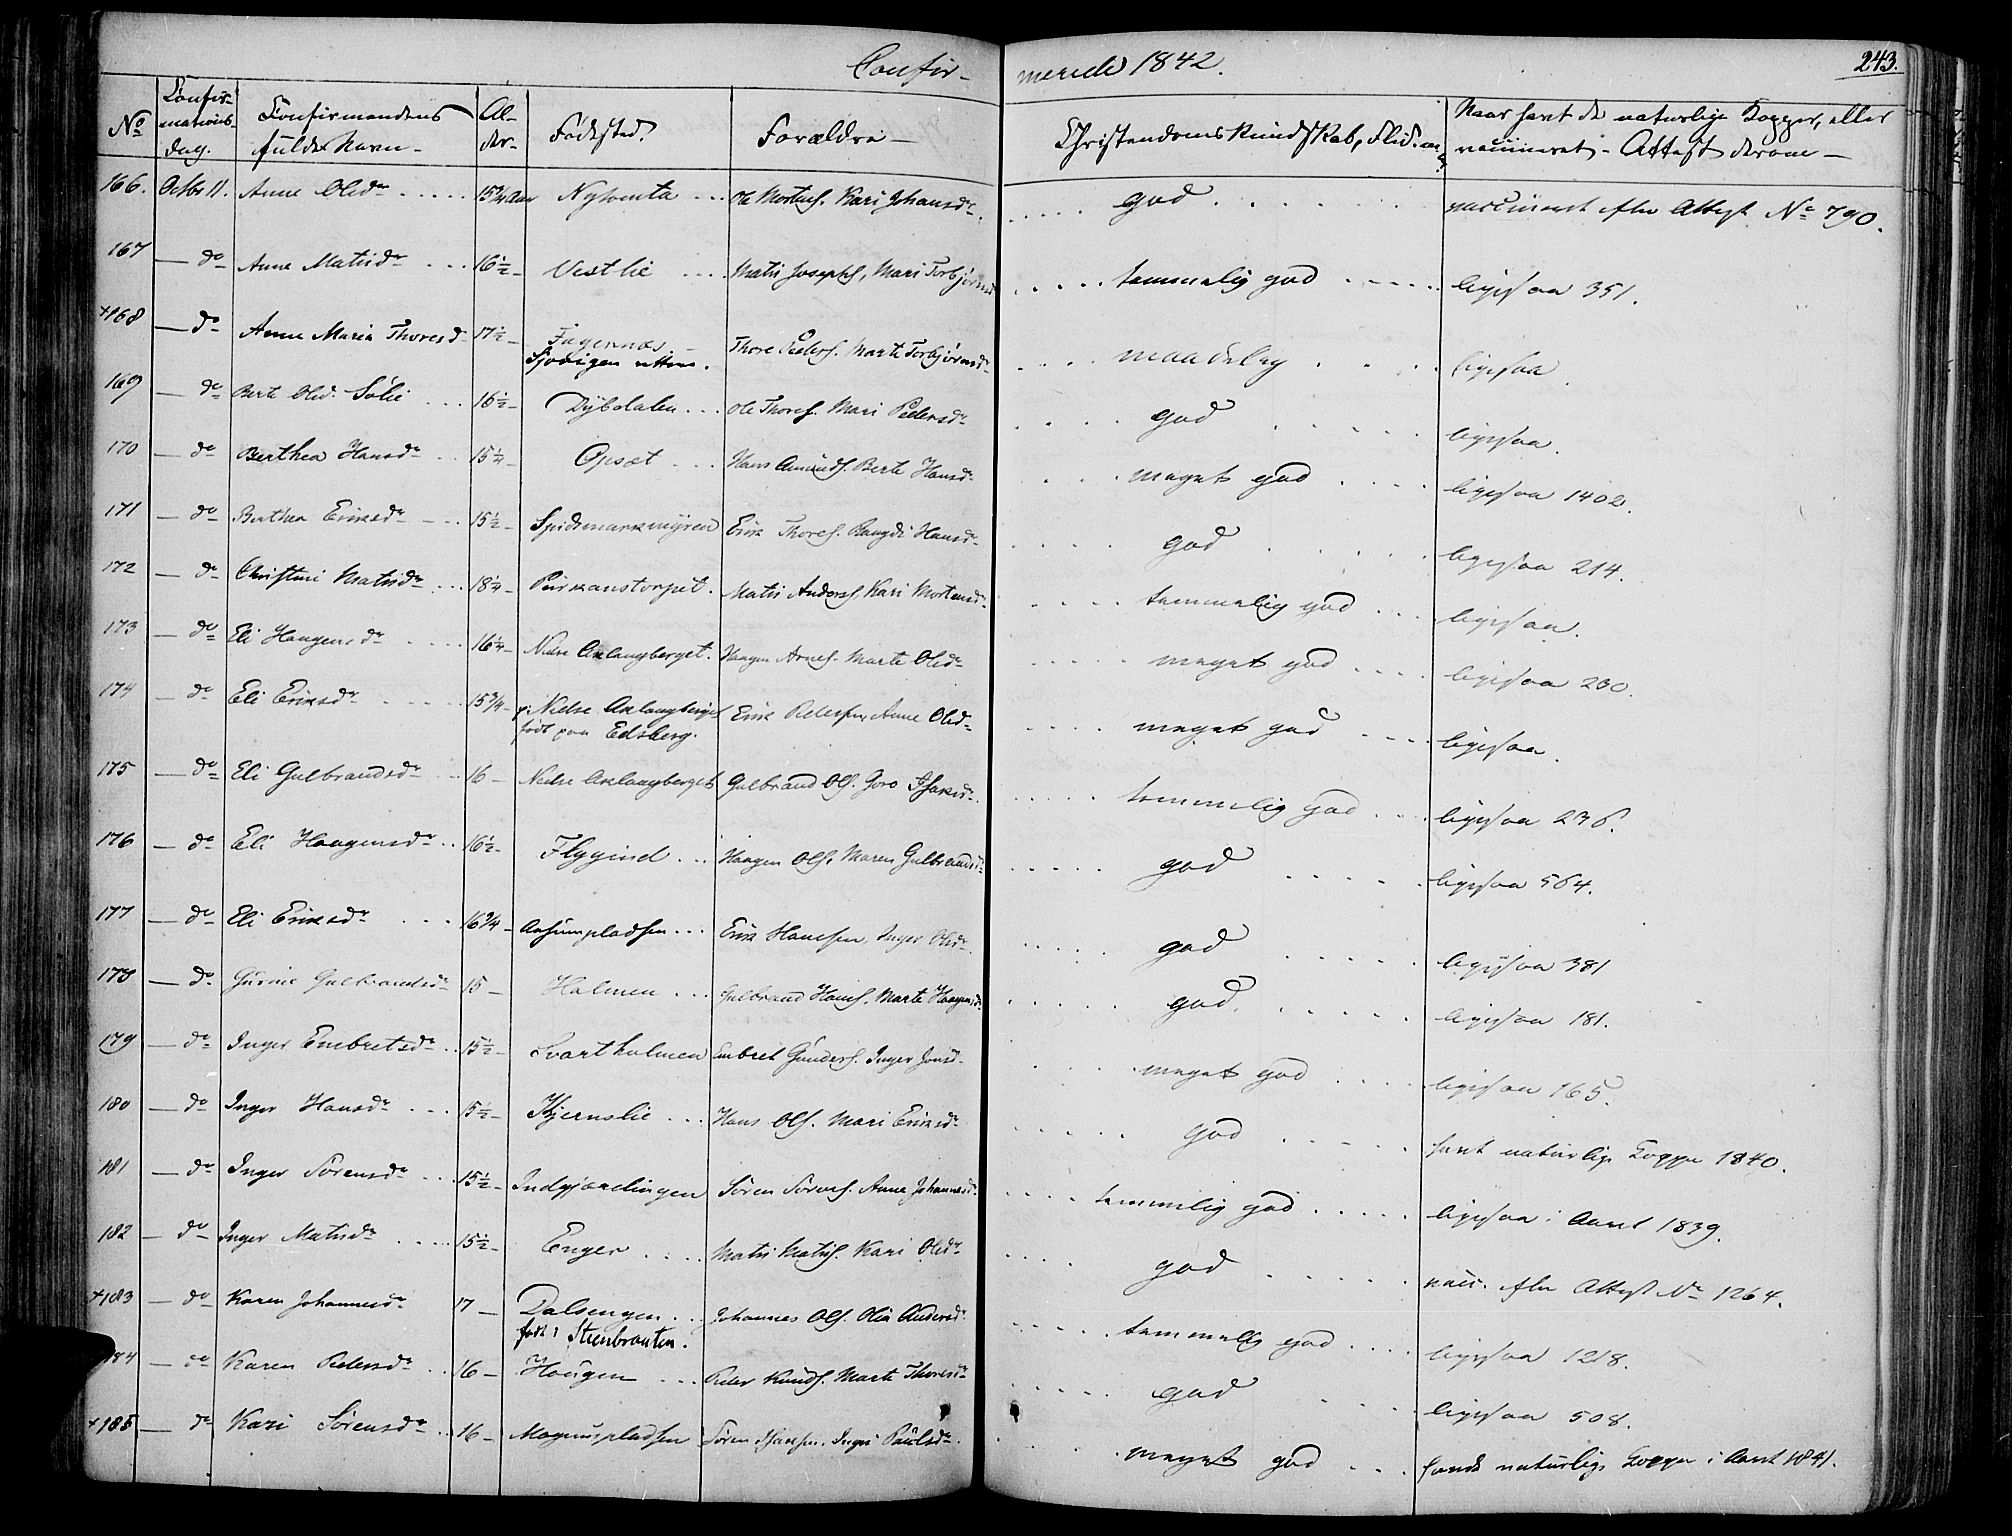 Confirmerede 1842. 243.
No Confirmations-Dag. Confirmandens fulde Navn Alder Fødested Forældre Christendoms Kundskab, Flid Naar havt de naturlige Kopper, eller vaccineret - Attest derom
166. Octbr 11. Anne Olsdr 15 3/4 Aar Nytomta Ole Mortens. Kari Johansdr god vaccineret efter Attest No 790.
167 do Anne Matisdr 16 1/2 Vestlie Matis Josephs, Mari Torbjørnsd temmelig god ligesaa 351.
+168 do Anne Maria Thoresd 17 1/2 Fagernæs Thore Peders. Marte Torbjørnsdr maadelig ligesaa
169 do Berte Olsd. Sølie 16 1/2 Dybdalen Ole Thores. Mari Pedersdr god ligesaa.
170 do Berthea Hansdr 15 1/4 Opsæt Hans Amunds. Berte Hansdr meget god ligesaa 1402.
171 do Berthea Eriksdr 15 1/2 Spidsmarkmyren Erik Thores. Rangdi Hansdr god ligesaa 214.
172 do Christine Matisdr 18 1/4 Purkanstorpet Matis Anders, Kari Mortensdr temmelig god ligesaa.
173 do Eli Haagensdr 16 1/4 Nedre Aslaugberget Haagen Arnes. Marte Olsdr meget god ligesaa 230.
174 do Eli Eriksdr 15 3/4 p: Nedre Aslaugberget født paa Edsberg. Erik Pedersen, Anne Olsdr meget god ligesaa.
175 do Eli Gulbrandsdr 16 Nedre Aslaugberget Gulbrand Ols. Goro Isaksdr temmelig god ligesaa 236.
176 do Eli Haagensdr 16 1/2 Flygind Haagen Ols. Maren Gulbrandsd god ligesaa 564.
177 do Eli Eriksdr 16 3/4 Aasumpladsen Erik Hansen, Inger Olsdr god ligesaa 381
178 do Gurine Gulbrandsdr 15 Holmen Gulbrand Hans. Marte Haagensdr god ligesaa 181.
179 do Inger Embretsdr 15 1/2 Svartholmen Embret Gunders. Inger Jonsd meget god ligesaa 165.
180 do Inger Hansdr 15 1/2 Kjernslie Hans Ols. Mari Eriksdr god havt naturlige Kopper 1840.
181 do Inger Sørensdr 15 1/2 Indgjærdingen Søren Sørens. Anne Johannesd temmelig god ligesaa i Aaret 1839.
182 do Inger Matisdr 15 1/2 Enger Matis Matis. Kari Olsdr god vacc. efter Attest No 1264.
+183 do Karen Johannesdr 17 Dalsengen født i Steenbraaten. Johannes Ols. Olia Andersdr temmelig god ligesaa 1218.
184 do Karen Pedersdr 16 Haugen Peder Knuds. Marte Thoresdr god ligesaa 508.
+185 do Kari Sørensdr 16 Magnuspladsen Søren Hansen, Ingri Paulsdr meget god havt naturlige Kopper i Aaret 1841.